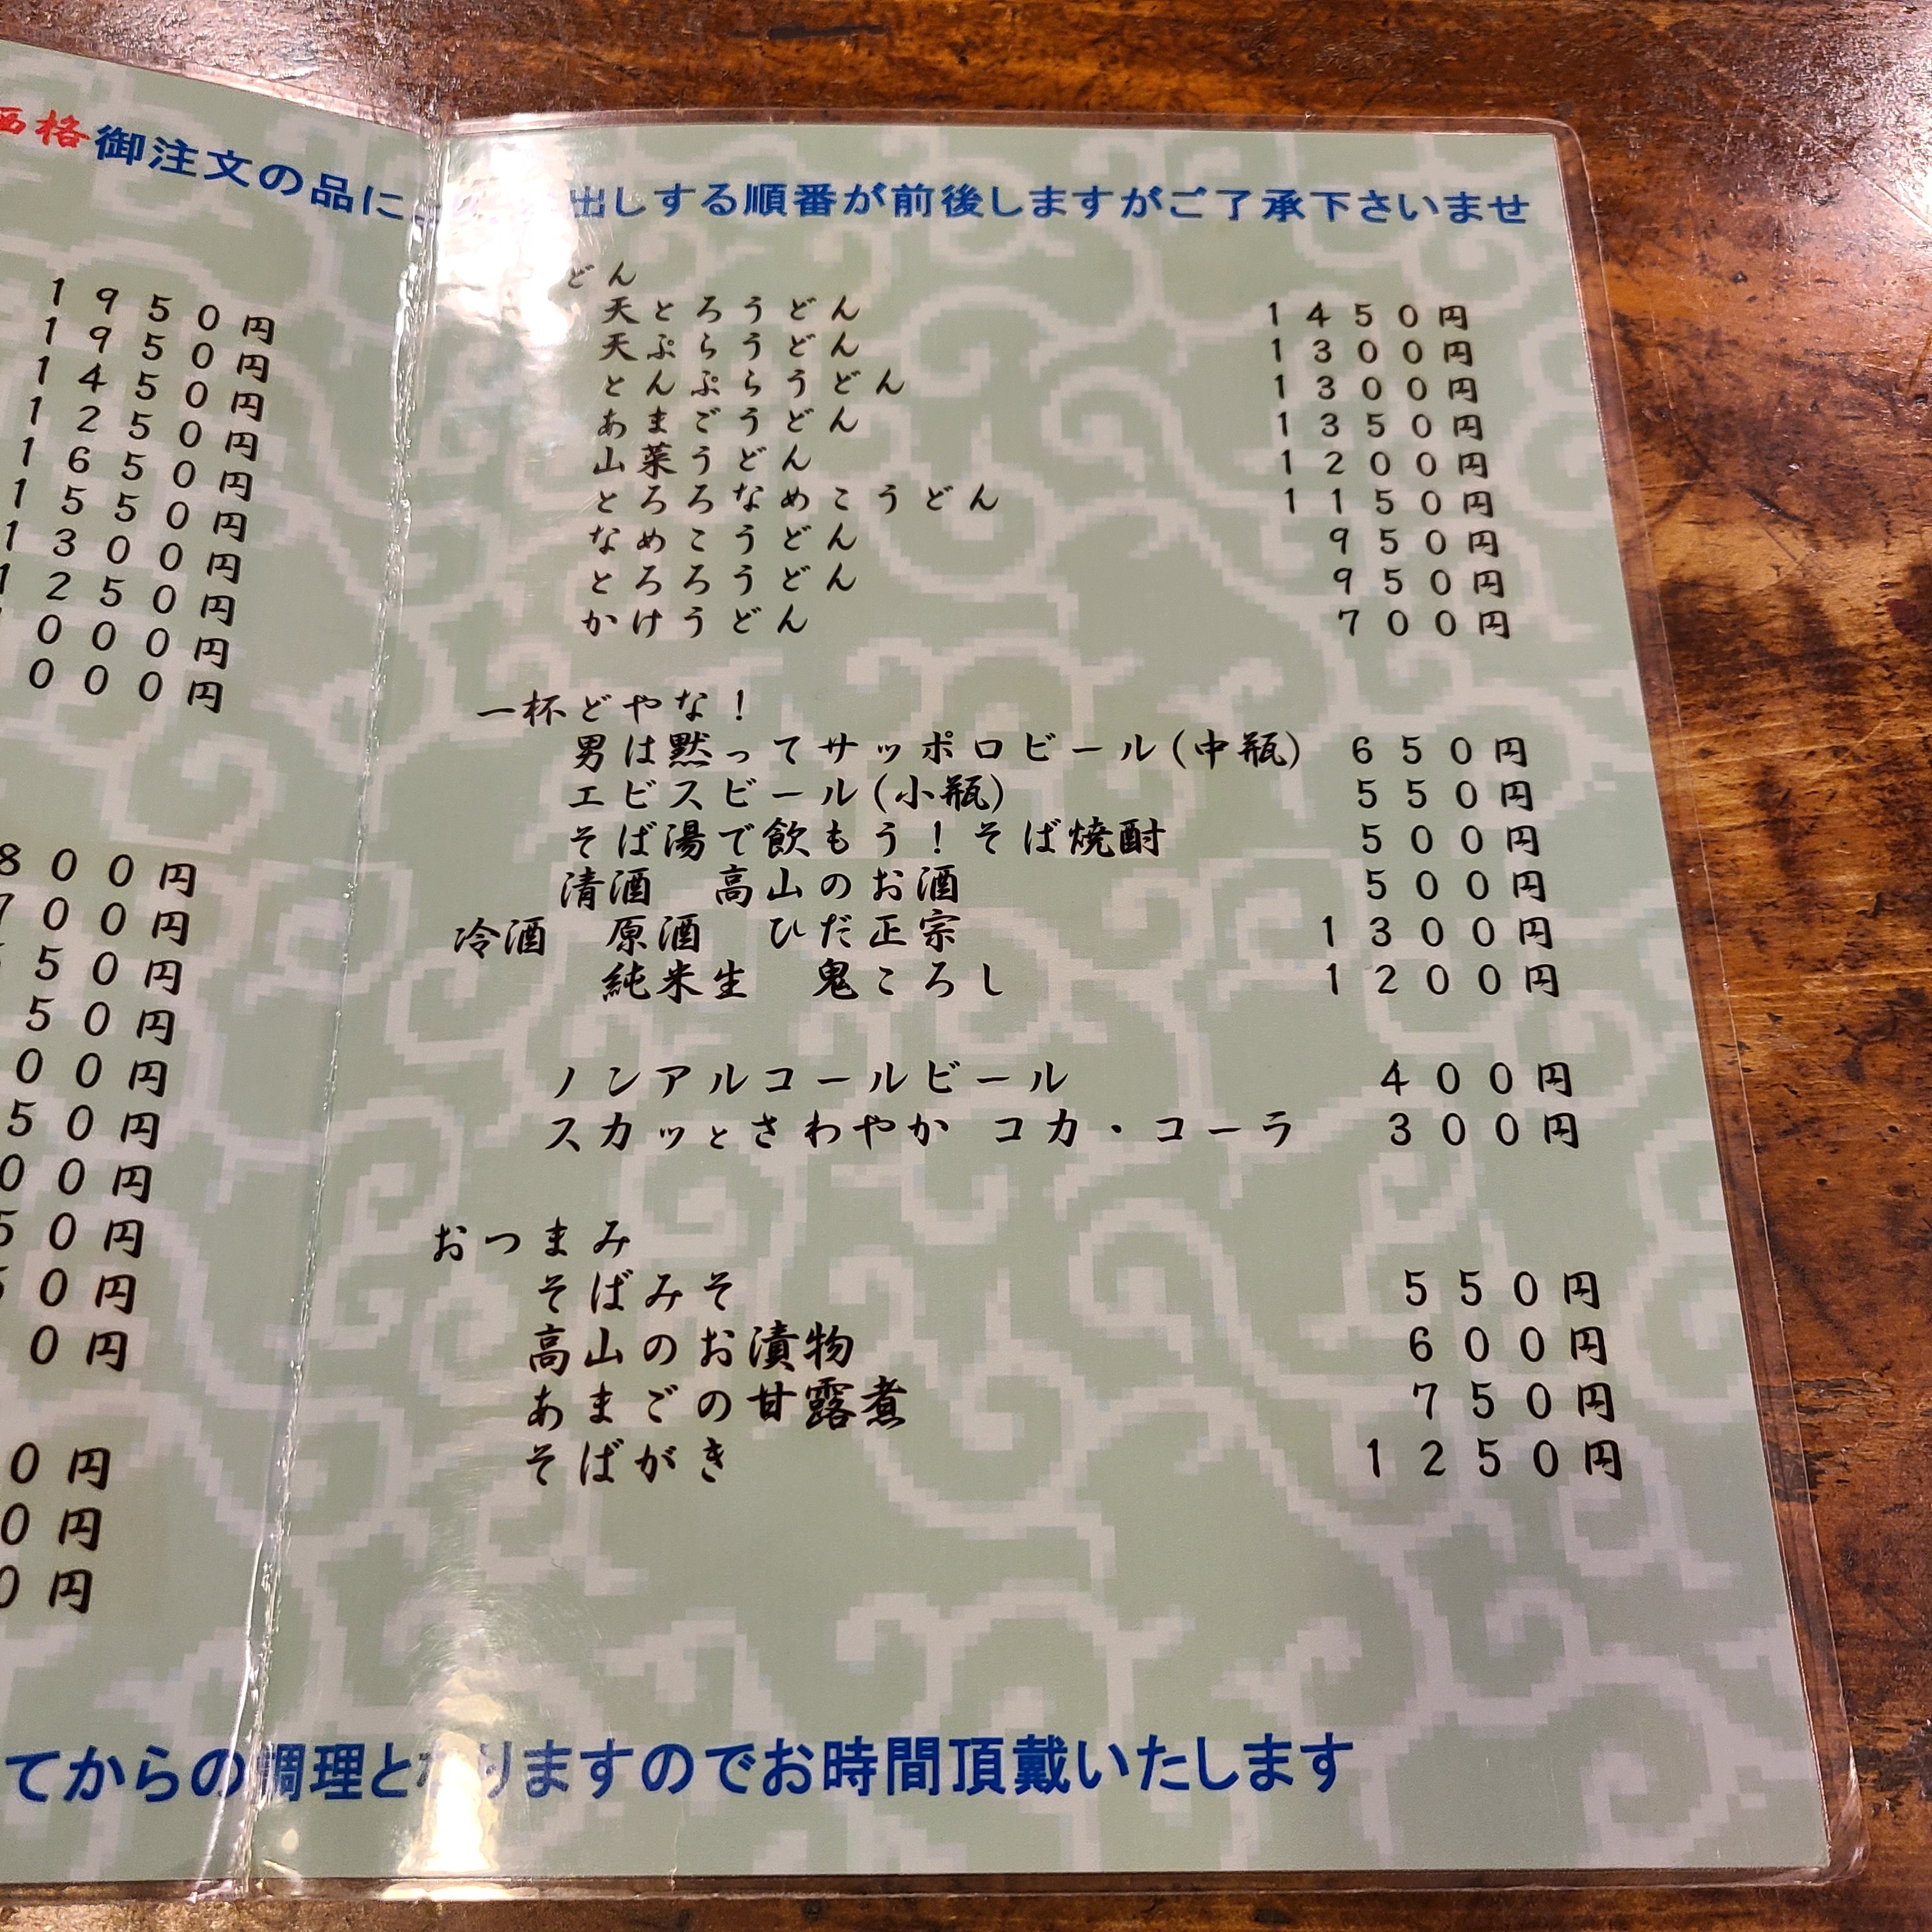 価格御注文の品に
出しする順番が前後しますがご了承下さいませ
1950円
1950円
1450円
1250円
1650円
1550円
1300円
1250円
000円
000円
800円
700円
550円
50円
00円
50円
00円
50円
50円
0円
0円
0円
0円
どん
天とろうどん 1450円
天ぷらうどん 1300円
とんぷらうどん 1300円
あまごうどん 1350円
山菜うどん 1200円
とろろなめこうどん 1150円
なめこうどん 950円
とろろうどん 950円
かけうどん 700円
一杯どやな！
男は黙ってサッポロビール(中瓶) 650円
エビスビール(小瓶) 550円
そば湯で飲もう！そば焼酎 500円
清酒 高山のお酒 500円
冷酒 原酒 ひだ正宗 1300円
純米生 鬼ころし 1200円
ノンアルコールビール 400円
スカッとさわやか コカ・コーラ 300円
おつまみ
そばみそ 550円
高山のお漬物 600円
あまごの甘露煮 750円
そばがき 1250円
てからの調理となりますのでお時間頂戴いたします